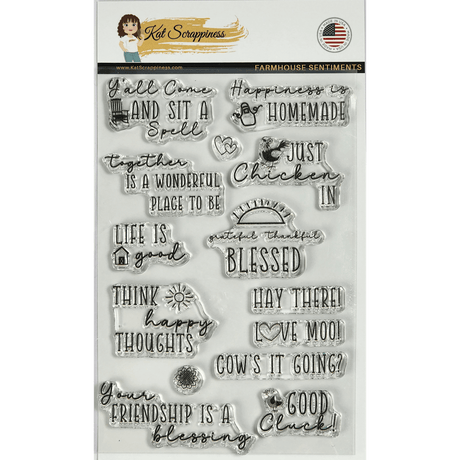 Kat Scrappiness
www.KatScrappiness.com
FARMHOUSE SENTIMENTS
Y'all Come
AND SIT A
Spell
Happiness is
HOMEMADE
together
IS A WONDERFUL
PLACE TO BE
JUST
Chicken
IN
LIFE IS
good
grateful thankful
BLESSED
THINK
happy
THOUGHTS
HAY THERE!
LOVE MOO!
COW'S IT GOING?
Your
FRIENDSHIP IS A
blessing
GOOD
Cluck!